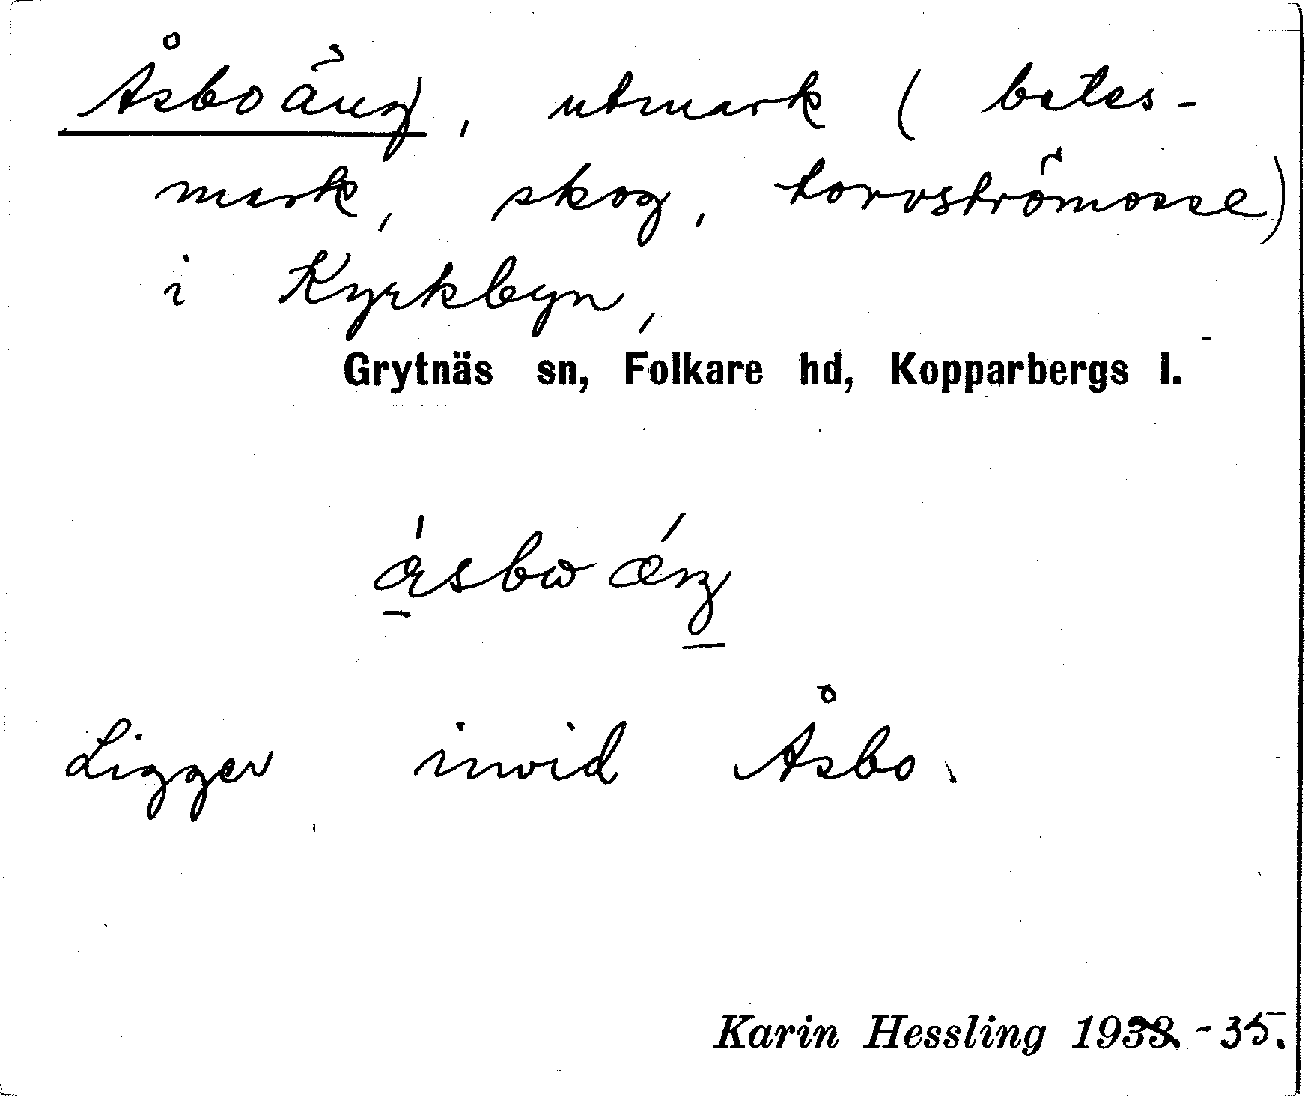 Åsboäng, utmark (betes-
mark, skog, torvströmosse)
i Kyrkbyn,
Grytnäs sn, Folkare hd, Kopparbergs l.
Ligger invid Åsbo.
Karin Hessling 1933.-35.